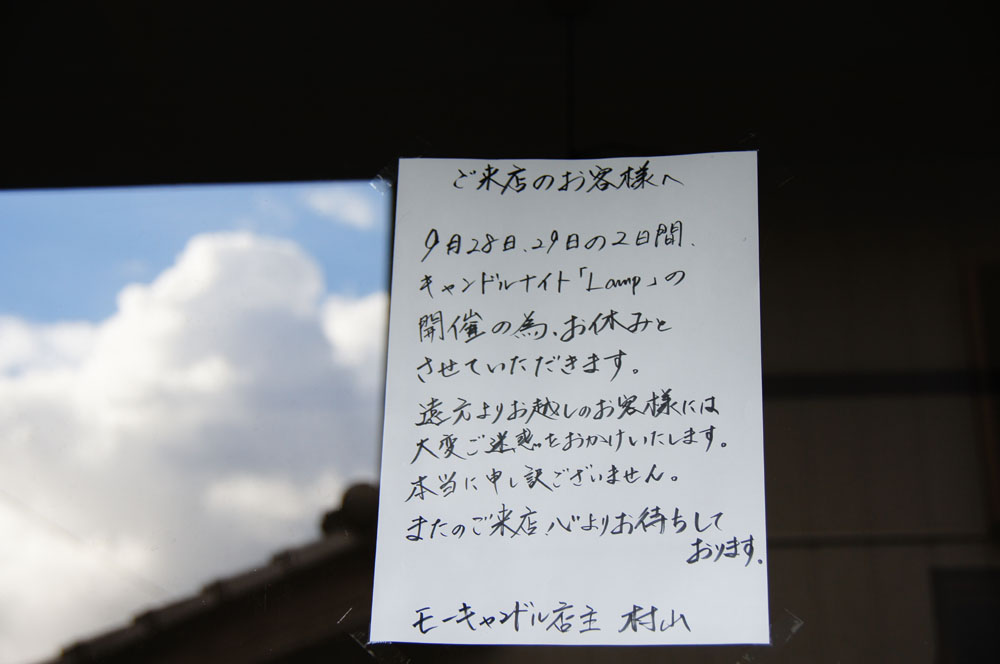 ご来店のお客様へ
9月28日、29日の2日間、
キャンドルナイト「Lamp」の
開催の為、お休みと
させていただきます。
遠方よりお越しのお客様には
大変ご迷惑をおかけいたします。
本当に申し訳ございません。
またのご来店心よりお待ちして
おります。
モーキャンドル店主 村山